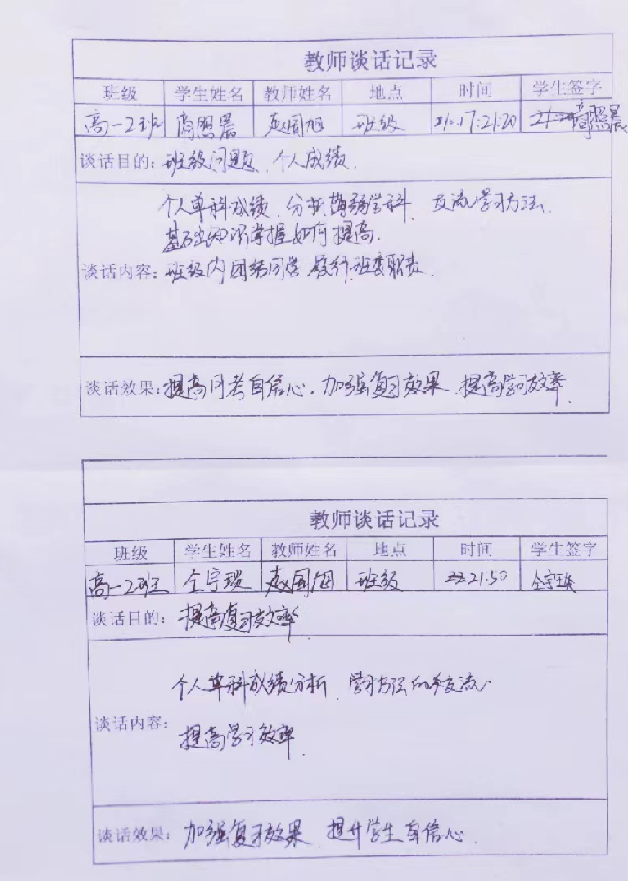 教师谈话记录
班级 学生姓名 教师姓名 地点 时间 学生签字
高一2班 照晨 赵国旭 班级 17:21:20 照晨
谈话目的: 班级问题、个人成绩.
个人单科成绩. 分析薄弱学科. 交流学习方法.
基础知识掌握如何提高.
谈话内容: 班级内团结同学 履行班委职责.
谈话效果: 提高月考自信心. 加强复习效果. 提高学习效率.
教师谈话记录
班级 学生姓名 教师姓名 地点 时间 学生签字
高一2班 仝宇瑞 赵国旭 班级 21:50 仝宇瑞
谈话目的: 提高复习效率
个人单科成绩分析. 学习方法的交流.
谈话内容:
提高学习效率.
谈话效果: 加强复习效果. 提升学生自信心.